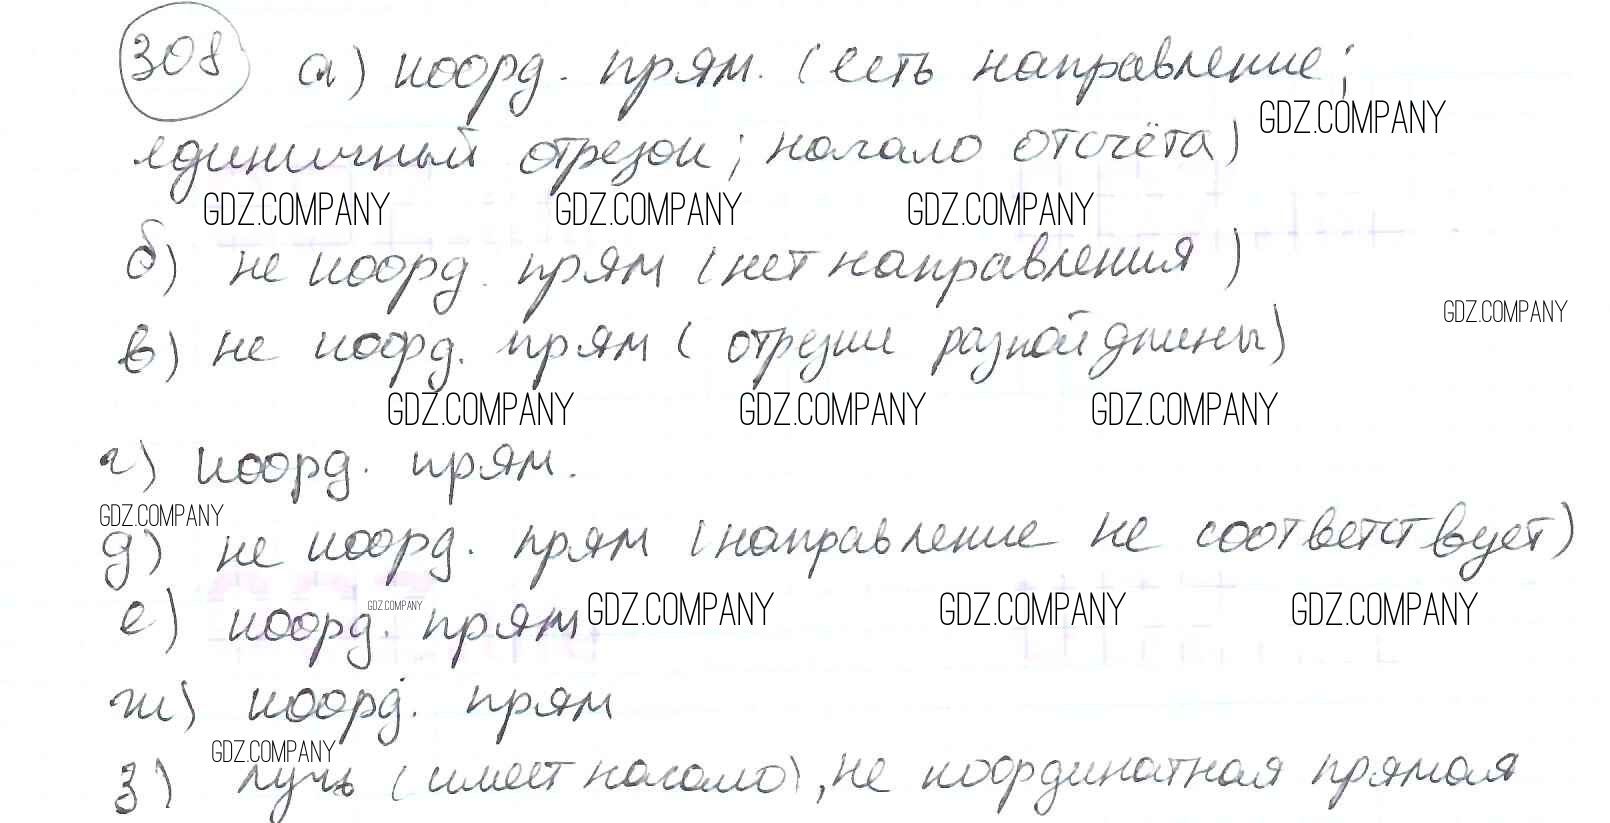 308 а) коорд. прям. (есть направление;
GDZ.COMPANY
единичный отрезок; начало отсчёта)
GDZ.COMPANY GDZ.COMPANY GDZ.COMPANY
б) не коорд. прям (нет направления)
GDZ.COMPANY
в) не коорд. прям (отрезки разной длины)
GDZ.COMPANY GDZ.COMPANY GDZ.COMPANY
г) коорд. прям.
GDZ.COMPANY
д) не коорд. прям (направление не соответствует)
GDZ.COMPANY GDZ.COMPANY GDZ.COMPANY GDZ.COMPANY
е) коорд. прям
ж) коорд. прям
GDZ.COMPANY
з) лучь (имеет начало), не координатная прямая